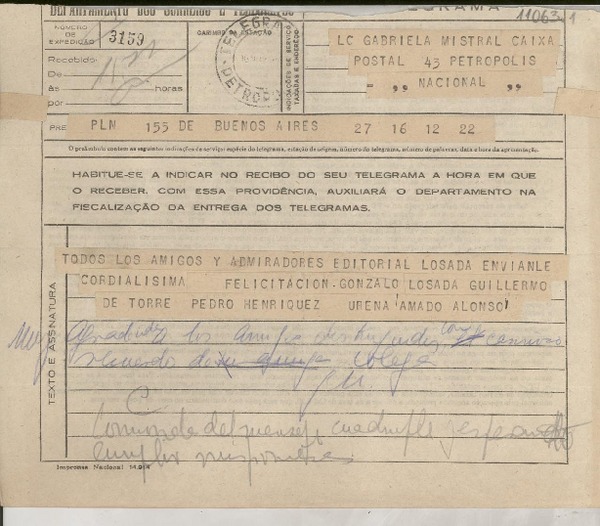 DEPARTAMENTO DOS CORREIOS E TELEGRAFOS
TELEGRAMA
110631
NÚMERO DE EXPEDIÇÃO
3159
CARIMBO DA ESTAÇÃO
INDICAÇÕES DE SERVIÇO TAXADAS E ENDEREÇO
LC GABRIELA MISTRAL CAIXA
POSTAL 43 PETROPOLIS
= ,, NACIONAL ,,
Recebido:
De
às horas
por
PRE PLN 155 DE BUENOS AIRES 27 16 12 22
O preâmbulo contem as seguintes indicações de serviço: espécie do telegrama, estação de origem, número do telegrama, número de palavras, data e hora da apresentação.
HABITUE-SE A INDICAR NO RECIBO DO SEU TELEGRAMA A HORA EM QUE
O RECEBER. COM ESSA PROVIDÊNCIA, AUXILIARÁ O DEPARTAMENTO NA
FISCALIZAÇÃO DA ENTREGA DOS TELEGRAMAS.
TEXTO E ASSINATURA
TODOS LOS AMIGOS Y ADMIRADORES EDITORIAL LOSADA ENVIANLE
CORDIALISIMA FELICITACION.GONZALO LOSADA GUILLERMO
DE TORRE PEDRO HENRIQUEZ URENA AMADO ALONSO
Muy agradecida los amigos distinguidos
recuerdo de colega
GM
Imprensa Nacional 14.914